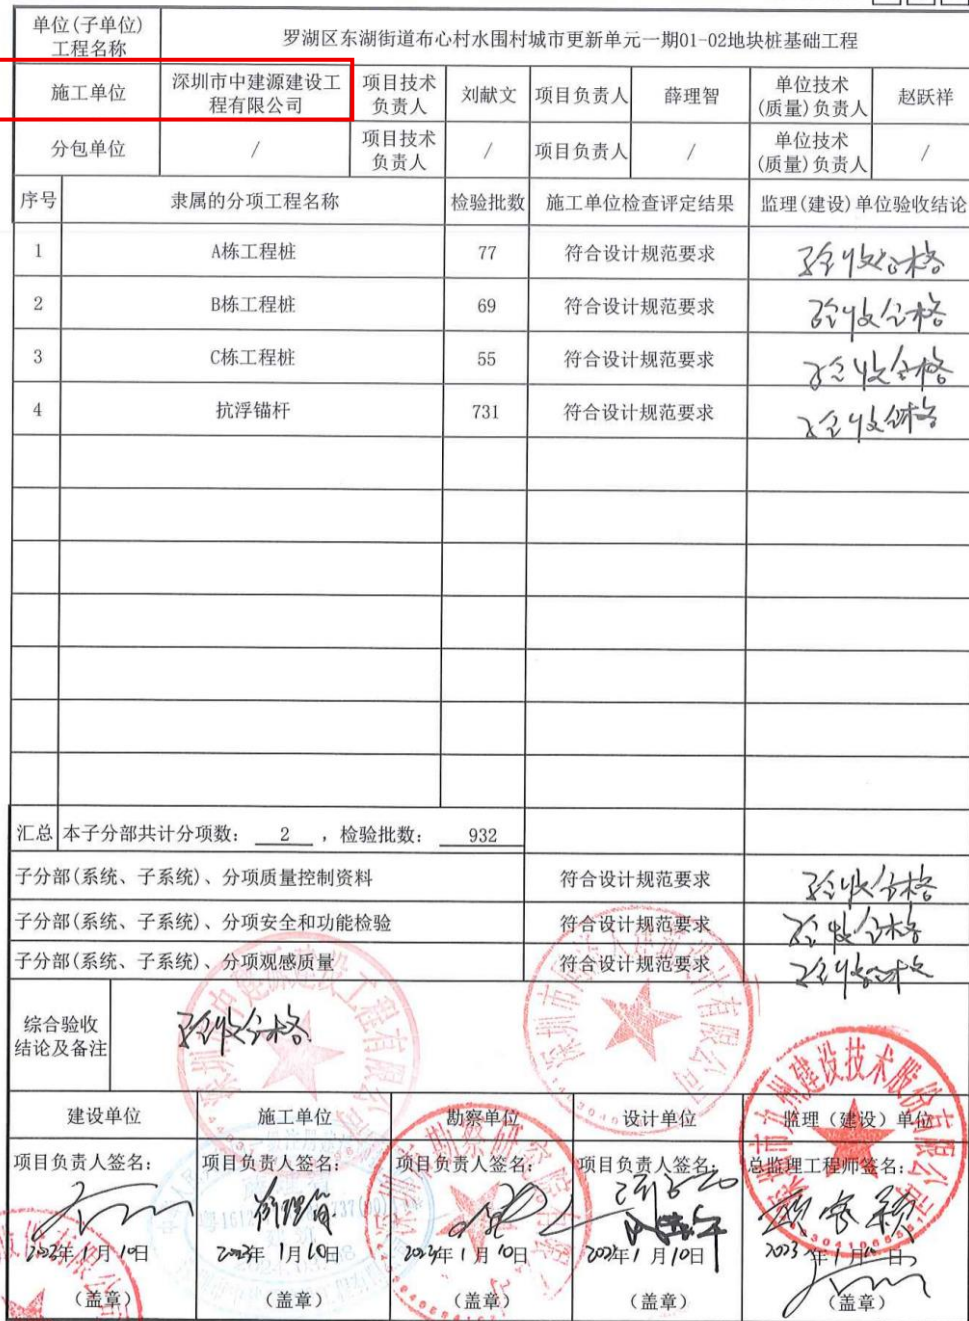 单位(子单位)
工程名称
罗湖区东湖街道布心村水围村城市更新单元一期01-02地块桩基础工程
施工单位
深圳市中建源建设工
程有限公司
项目技术
负责人
刘献文
项目负责人
薛理智
单位技术
(质量)负责人
赵跃祥
分包单位
/
项目技术
负责人
/
项目负责人
/
单位技术
(质量)负责人
/
序号 隶属的分项工程名称 检验批数 施工单位检查评定结果 监理(建设)单位验收结论
1 A栋工程桩 77 符合设计规范要求 验收合格
2 B栋工程桩 69 符合设计规范要求 验收合格
3 C栋工程桩 55 符合设计规范要求 验收合格
4 抗浮锚杆 731 符合设计规范要求 验收合格
汇总 本子分部共计分项数: 2 ,检验批数: 932
子分部(系统、子系统)、分项质量控制资料 符合设计规范要求 验收合格
子分部(系统、子系统)、分项安全和功能检验 符合设计规范要求 验收合格
子分部(系统、子系统)、分项观感质量 符合设计规范要求 验收合格
综合验收
结论及备注
验收合格
深圳市中建源建设工程有限公司
深圳市九州建设技术股份有限公司
建设单位 施工单位 勘察单位 设计单位 监理(建设)单位
项目负责人签名: 项目负责人签名: 项目负责人签名: 项目负责人签名: 总监理工程师签名:
薛理智
2023年1月10日 2023年1月10日 2023年1月10日 2023年1月10日 2023年1月10日
(盖章) (盖章) (盖章) (盖章) (盖章)